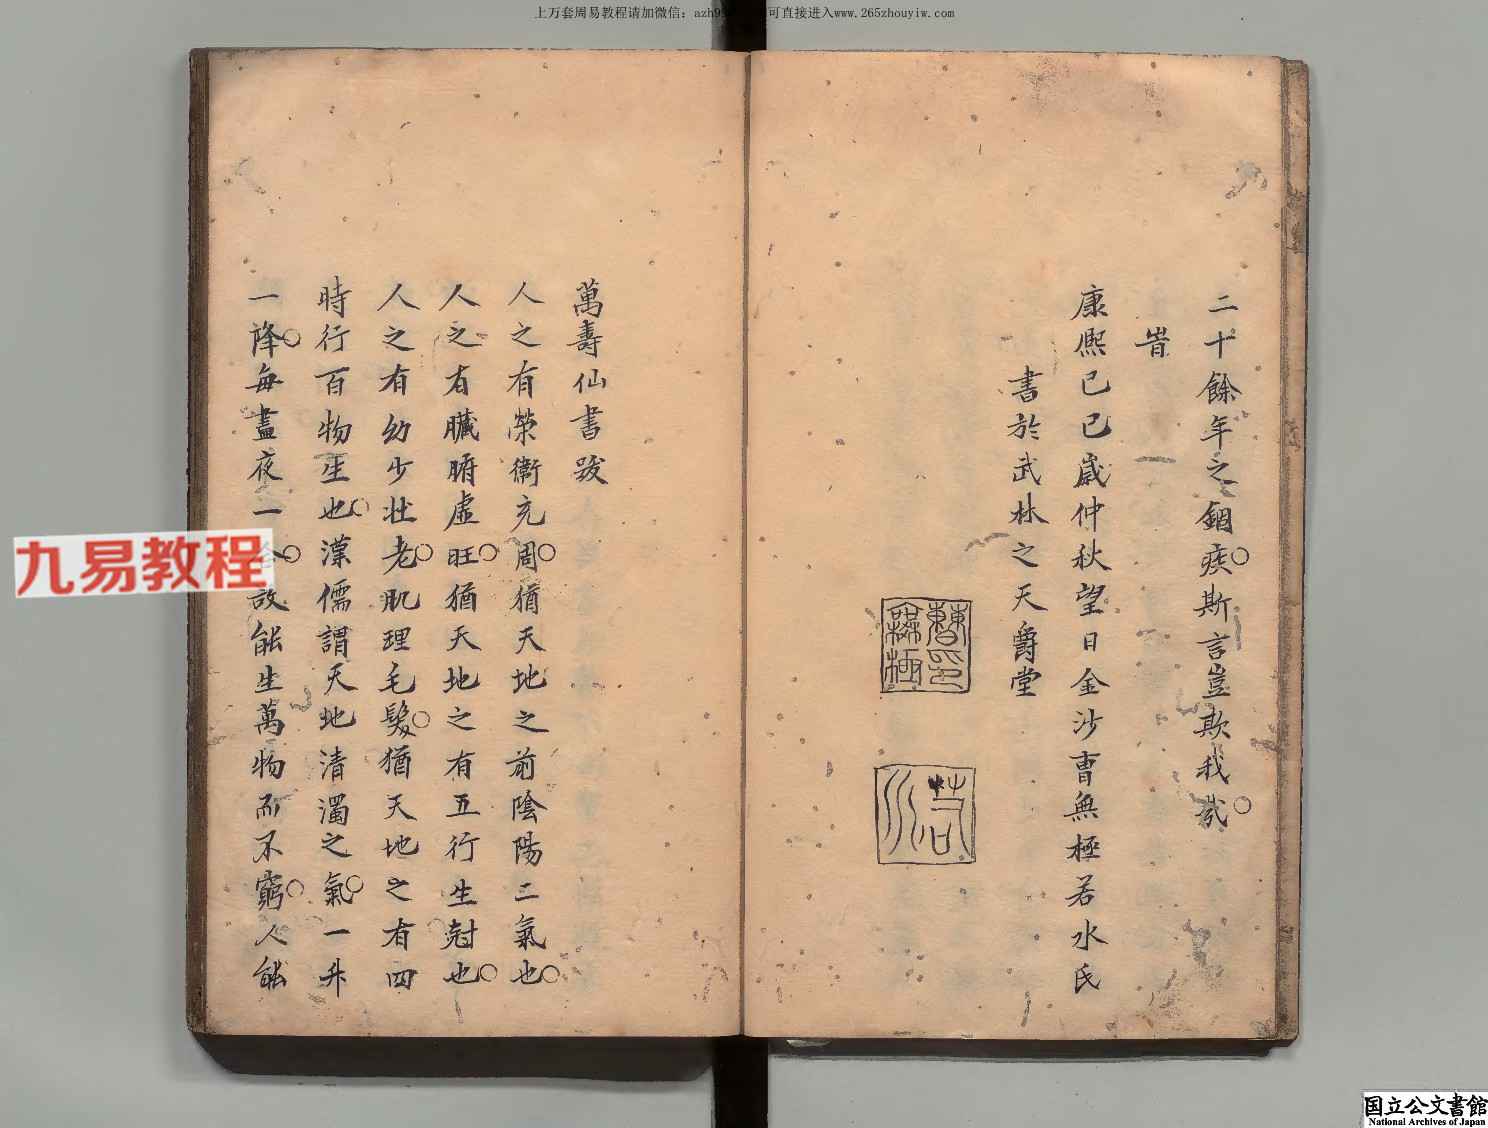 上万套周易教程请加微信：azh9 可直接进入www.265zhouyiw.com
二十餘年之錮疾○斯言豈欺我哉○
旹
康熙己巳歲仲秋望日金沙曹無極若水氏
書於武林之天爵堂
曹印無極
若水
萬壽仙書跋
人之有榮衛充周○猶天地之前陰陽二氣也○
人之有臟腑虛旺○猶天地之有五行生尅也○
人之有幼少壯老○肌理毛髮○猶天地之有四
時行百物生也○漢儒謂天地清濁之氣○一升
一降○每晝夜一合○故能生萬物而不窮○人能
九易教程
国立公文書館
National Archives of Japan